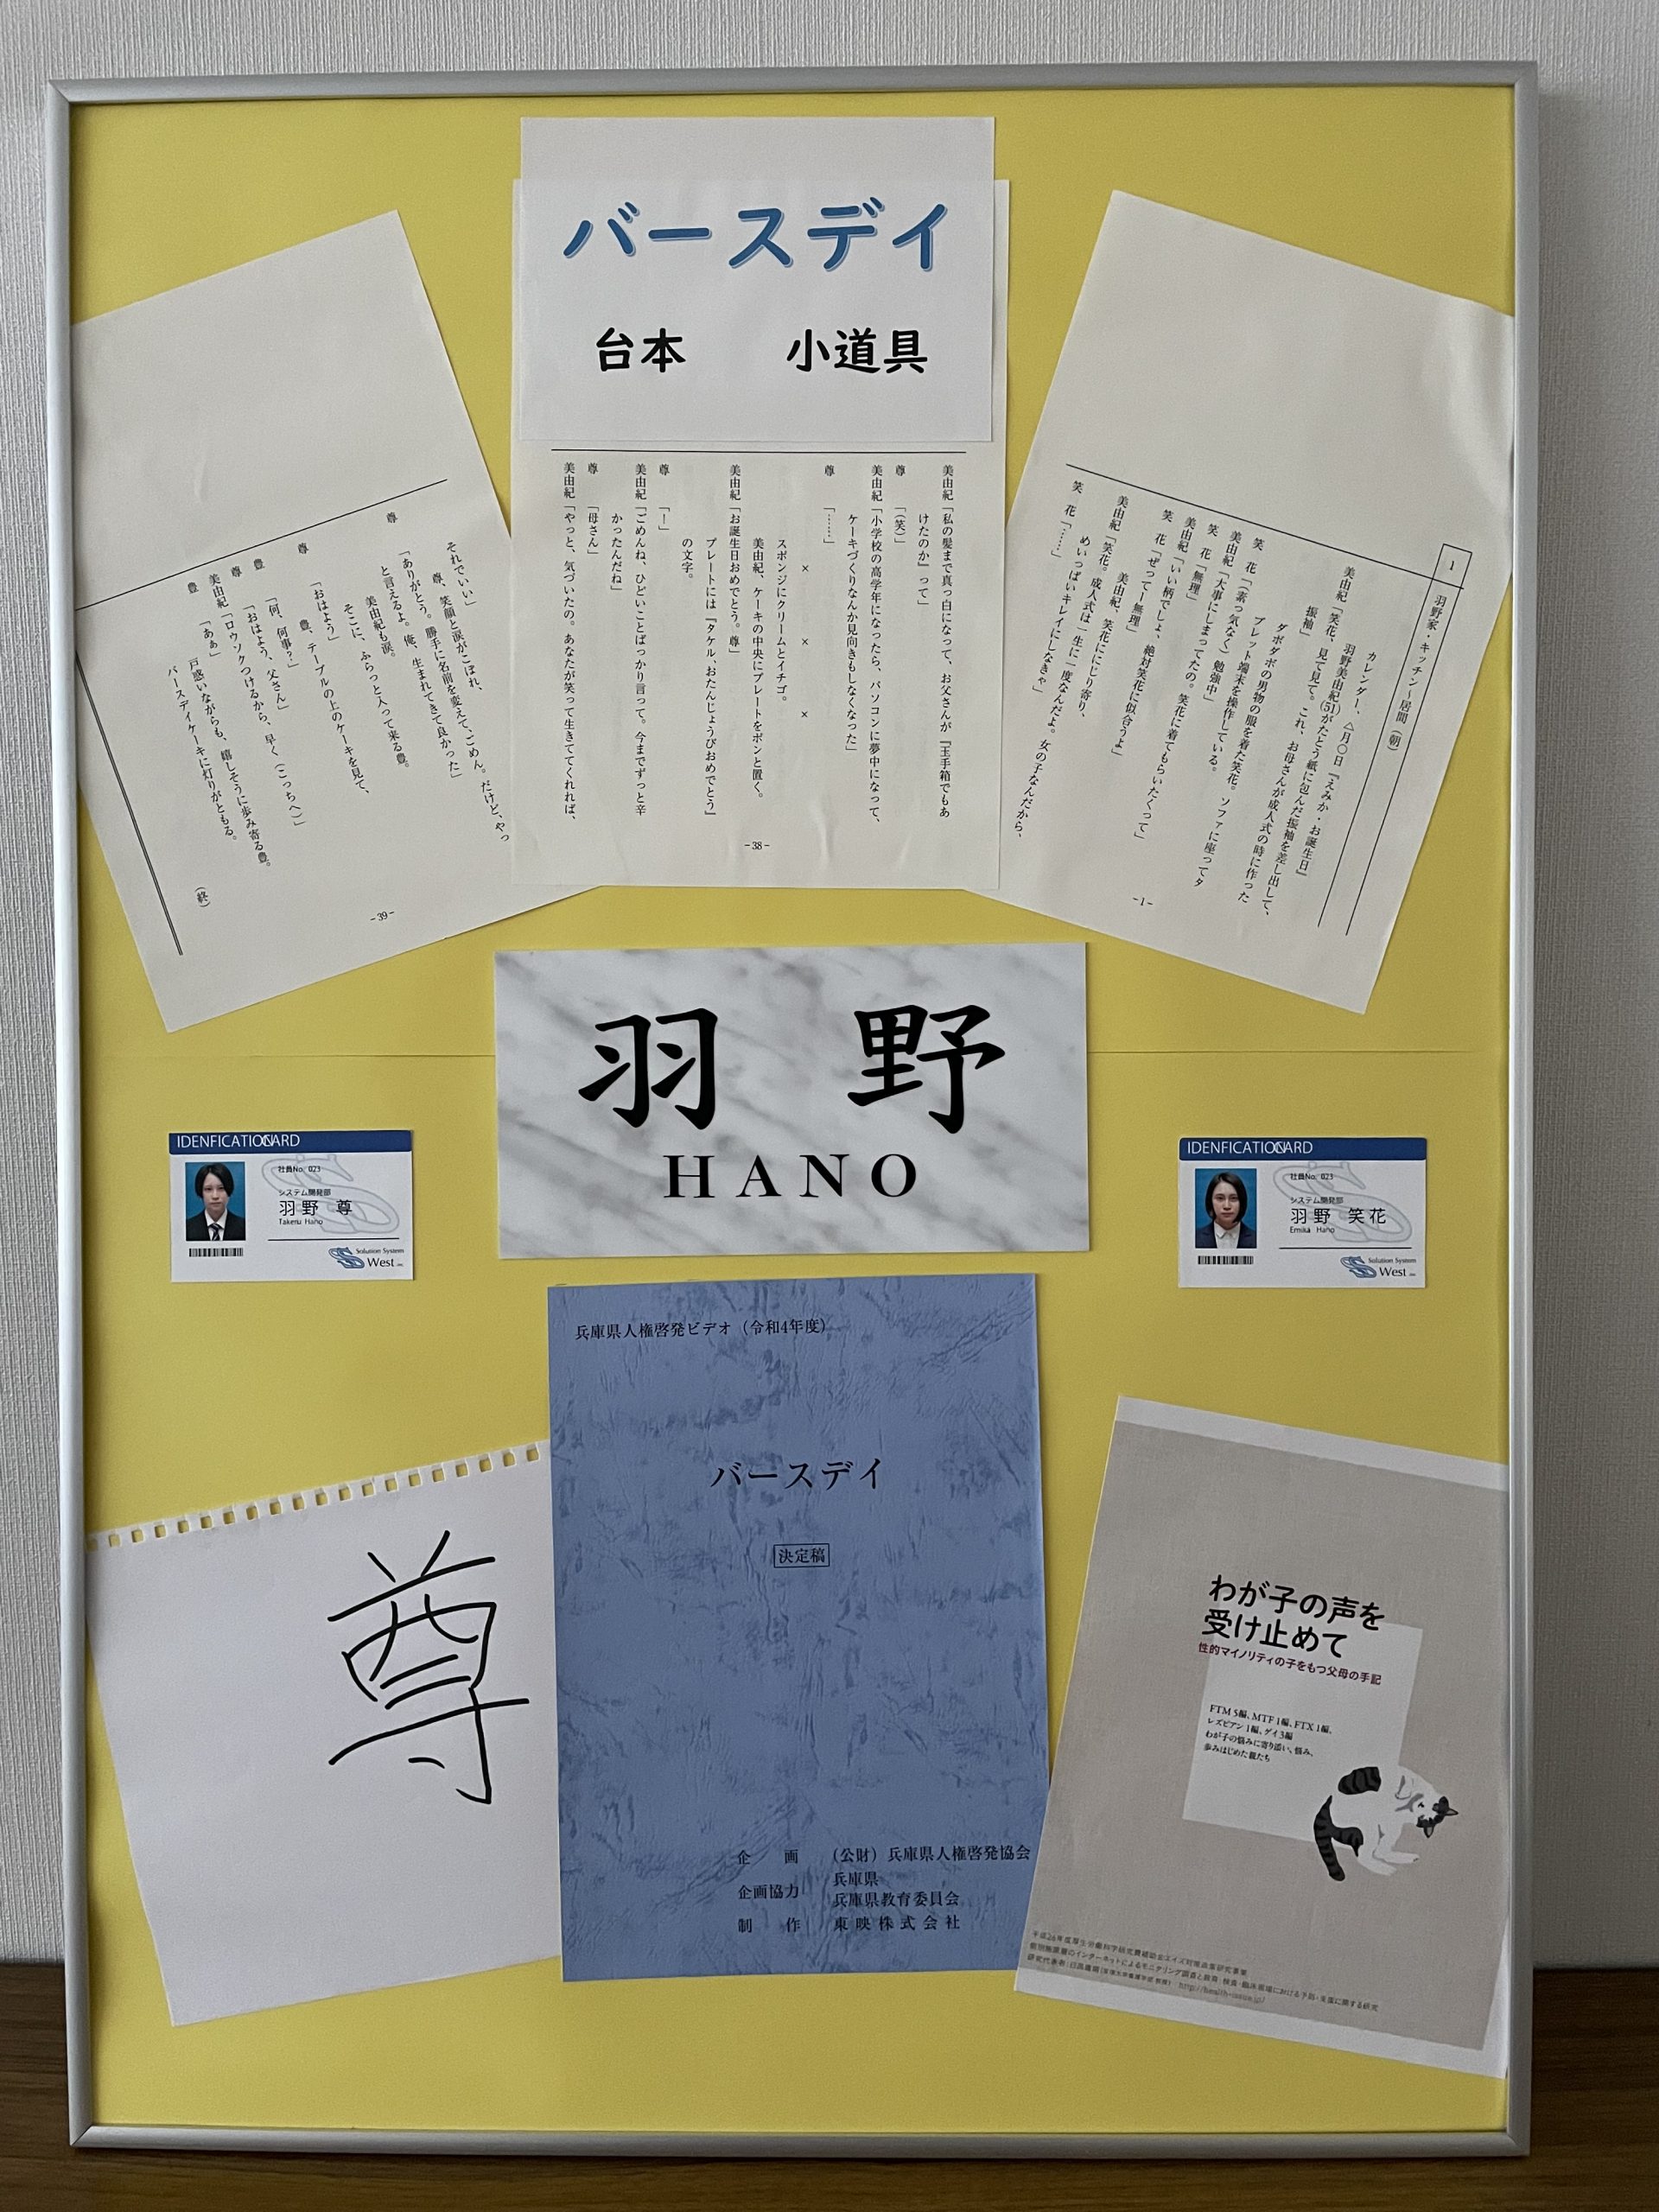 バースデイ
台本　小道具
1　羽野家・キッチン～居間（朝）
カレンダー、△月〇日『えみか・お誕生日』
羽野美由紀(51)がたとう紙に包んだ振袖を差し出して、
美由紀「笑花、見て見て。これ、お母さんが成人式の時に作った
振袖」
ダボダボの男物の服を着た笑花。ソファに座ってタ
ブレット端末を操作している。
笑　花「（素っ気なく）勉強中」
美由紀「大事にしまってたの。笑花に着てもらいたくって」
笑　花「無理」
美由紀「いい柄でしょ、絶対笑花に似合うよ」
笑　花「ぜってー無理」
美由紀、笑花ににじり寄り、
美由紀「笑花。成人式は一生に一度なんだよ。女の子なんだから、
めいっぱいキレイにしなきゃ」
笑　花「……」
-1-
美由紀「私の髪まで真っ白になって、お父さんが『玉手箱でもあ
けたのか』って」
尊　「（笑）」
美由紀「小学校の高学年になったら、パソコンに夢中になって、
ケーキづくりなんか見向きもしなくなった」
尊　「……」
×　×　×
スポンジにクリームとイチゴ。
美由紀、ケーキの中央にプレートをポンと置く。
美由紀「お誕生日おめでとう。尊」
プレートには『タケル、おたんじょうびおめでとう』
の文字。
尊　「！」
美由紀「ごめんね、ひどいことばっかり言って。今までずっと辛
かったんだね」
尊　「母さん」
美由紀「やっと、気づいたの。あなたが笑って生きててくれれば、
-38-
それでいい」
尊、笑顔と涙がこぼれ、
尊　「ありがとう。勝手に名前を変えて、ごめん。だけど、やっ
と言えるよ。俺、生まれてきて良かった」
美由紀も涙。
そこに、ふらっと入って来る豊。
尊　「おはよう」
豊、テーブルの上のケーキを見て、
豊　「何、何事？」
尊　「おはよう、父さん」
美由紀「ロウソクつけるから、早く（こっちへ）」
豊　「あぁ」
戸惑いながらも、嬉しそうに歩み寄る豊。
バースデイケーキに灯りがともる。
（終）
-39-
羽野
HANO
IDENFICATION CARD
社員No. 023
システム開発部
羽野　尊
Takeru Hano
Solution System
West
IDENFICATION CARD
社員No. 023
システム開発部
羽野　笑花
Emika Hano
Solution System
West
尊
兵庫県人権啓発ビデオ（令和4年度）
バースデイ
決定稿
企　画　（公財）兵庫県人権啓発協会
企画協力　兵庫県
兵庫県教育委員会
制　作　東映株式会社
わが子の声を
受け止めて
性的マイノリティの子をもつ父母の手記
FTM 5編、MTF 1編、FTX 1編、
レズビアン 1編、ゲイ3編
わが子の悩みに寄り添い、悩み、
歩みはじめた親たち